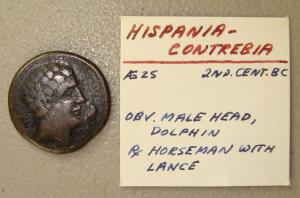 HISPANIA-
CONTREBIA
Æ25 2ND. CENT. BC
OBV. MALE HEAD,
DOLPHIN
℞ HORSEMAN WITH
LANCE